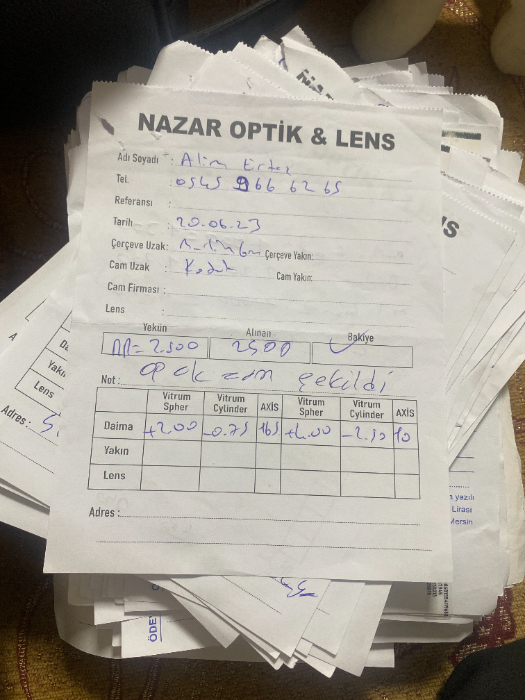 NAZAR OPTİK & LENS
Adı Soyadı : Alim
Tel. : 0545 966 62 65
Referansı :
Tarih : 20.06.23
Çerçeve Uzak: Çerçeve Yakın:
Cam Uzak : Kodak Cam Yakın:
Cam Firması :
Lens :
Yekün Alınan Bakiye
= 2.500 2500
Not : çekildi
Vitrum Spher Vitrum Cylinder AXİS Vitrum Spher Vitrum Cylinder AXİS
Daima +2.00 -0.75 165 10
Yakın
Lens
Adres :
US
Lens
Adres :
yazdı
Lirası
Mersin
ÖDE